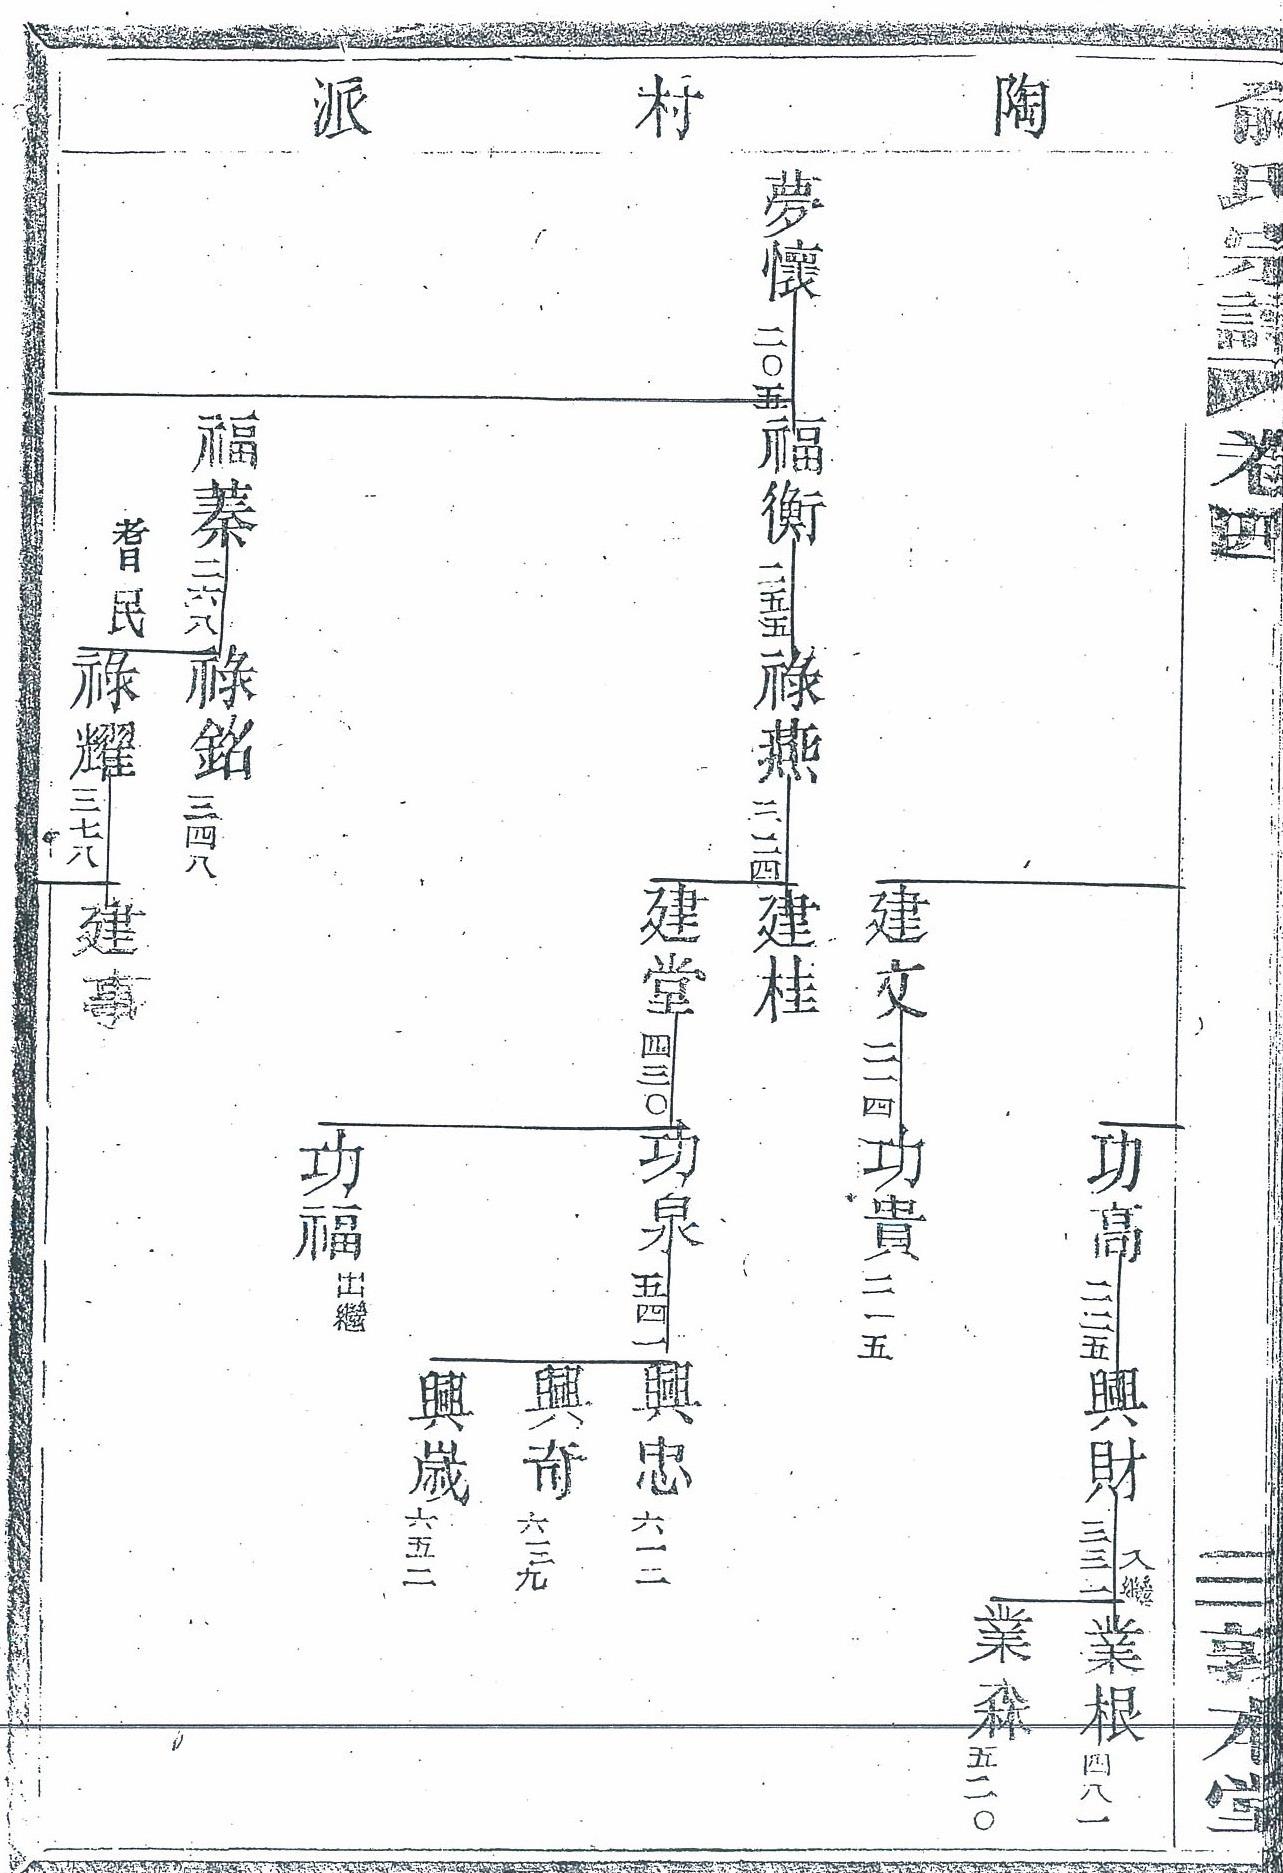 俞氏宗譜
卷四
敦本堂
陶村派
功高 二二五
興財 三三一 入繼
業根 四八一
業森 五二〇
建文 二一四
功貴 二一五
夢懷 二〇五
福衡 二五五
祿燕 三二四
建桂
建堂 四三〇
功泉 五四一
興忠 六一二
興奇 六三九
興歲 六五二
功福 出繼
福蓁 二六八
祿銘 三四八
耆民
祿耀 三七八
建事